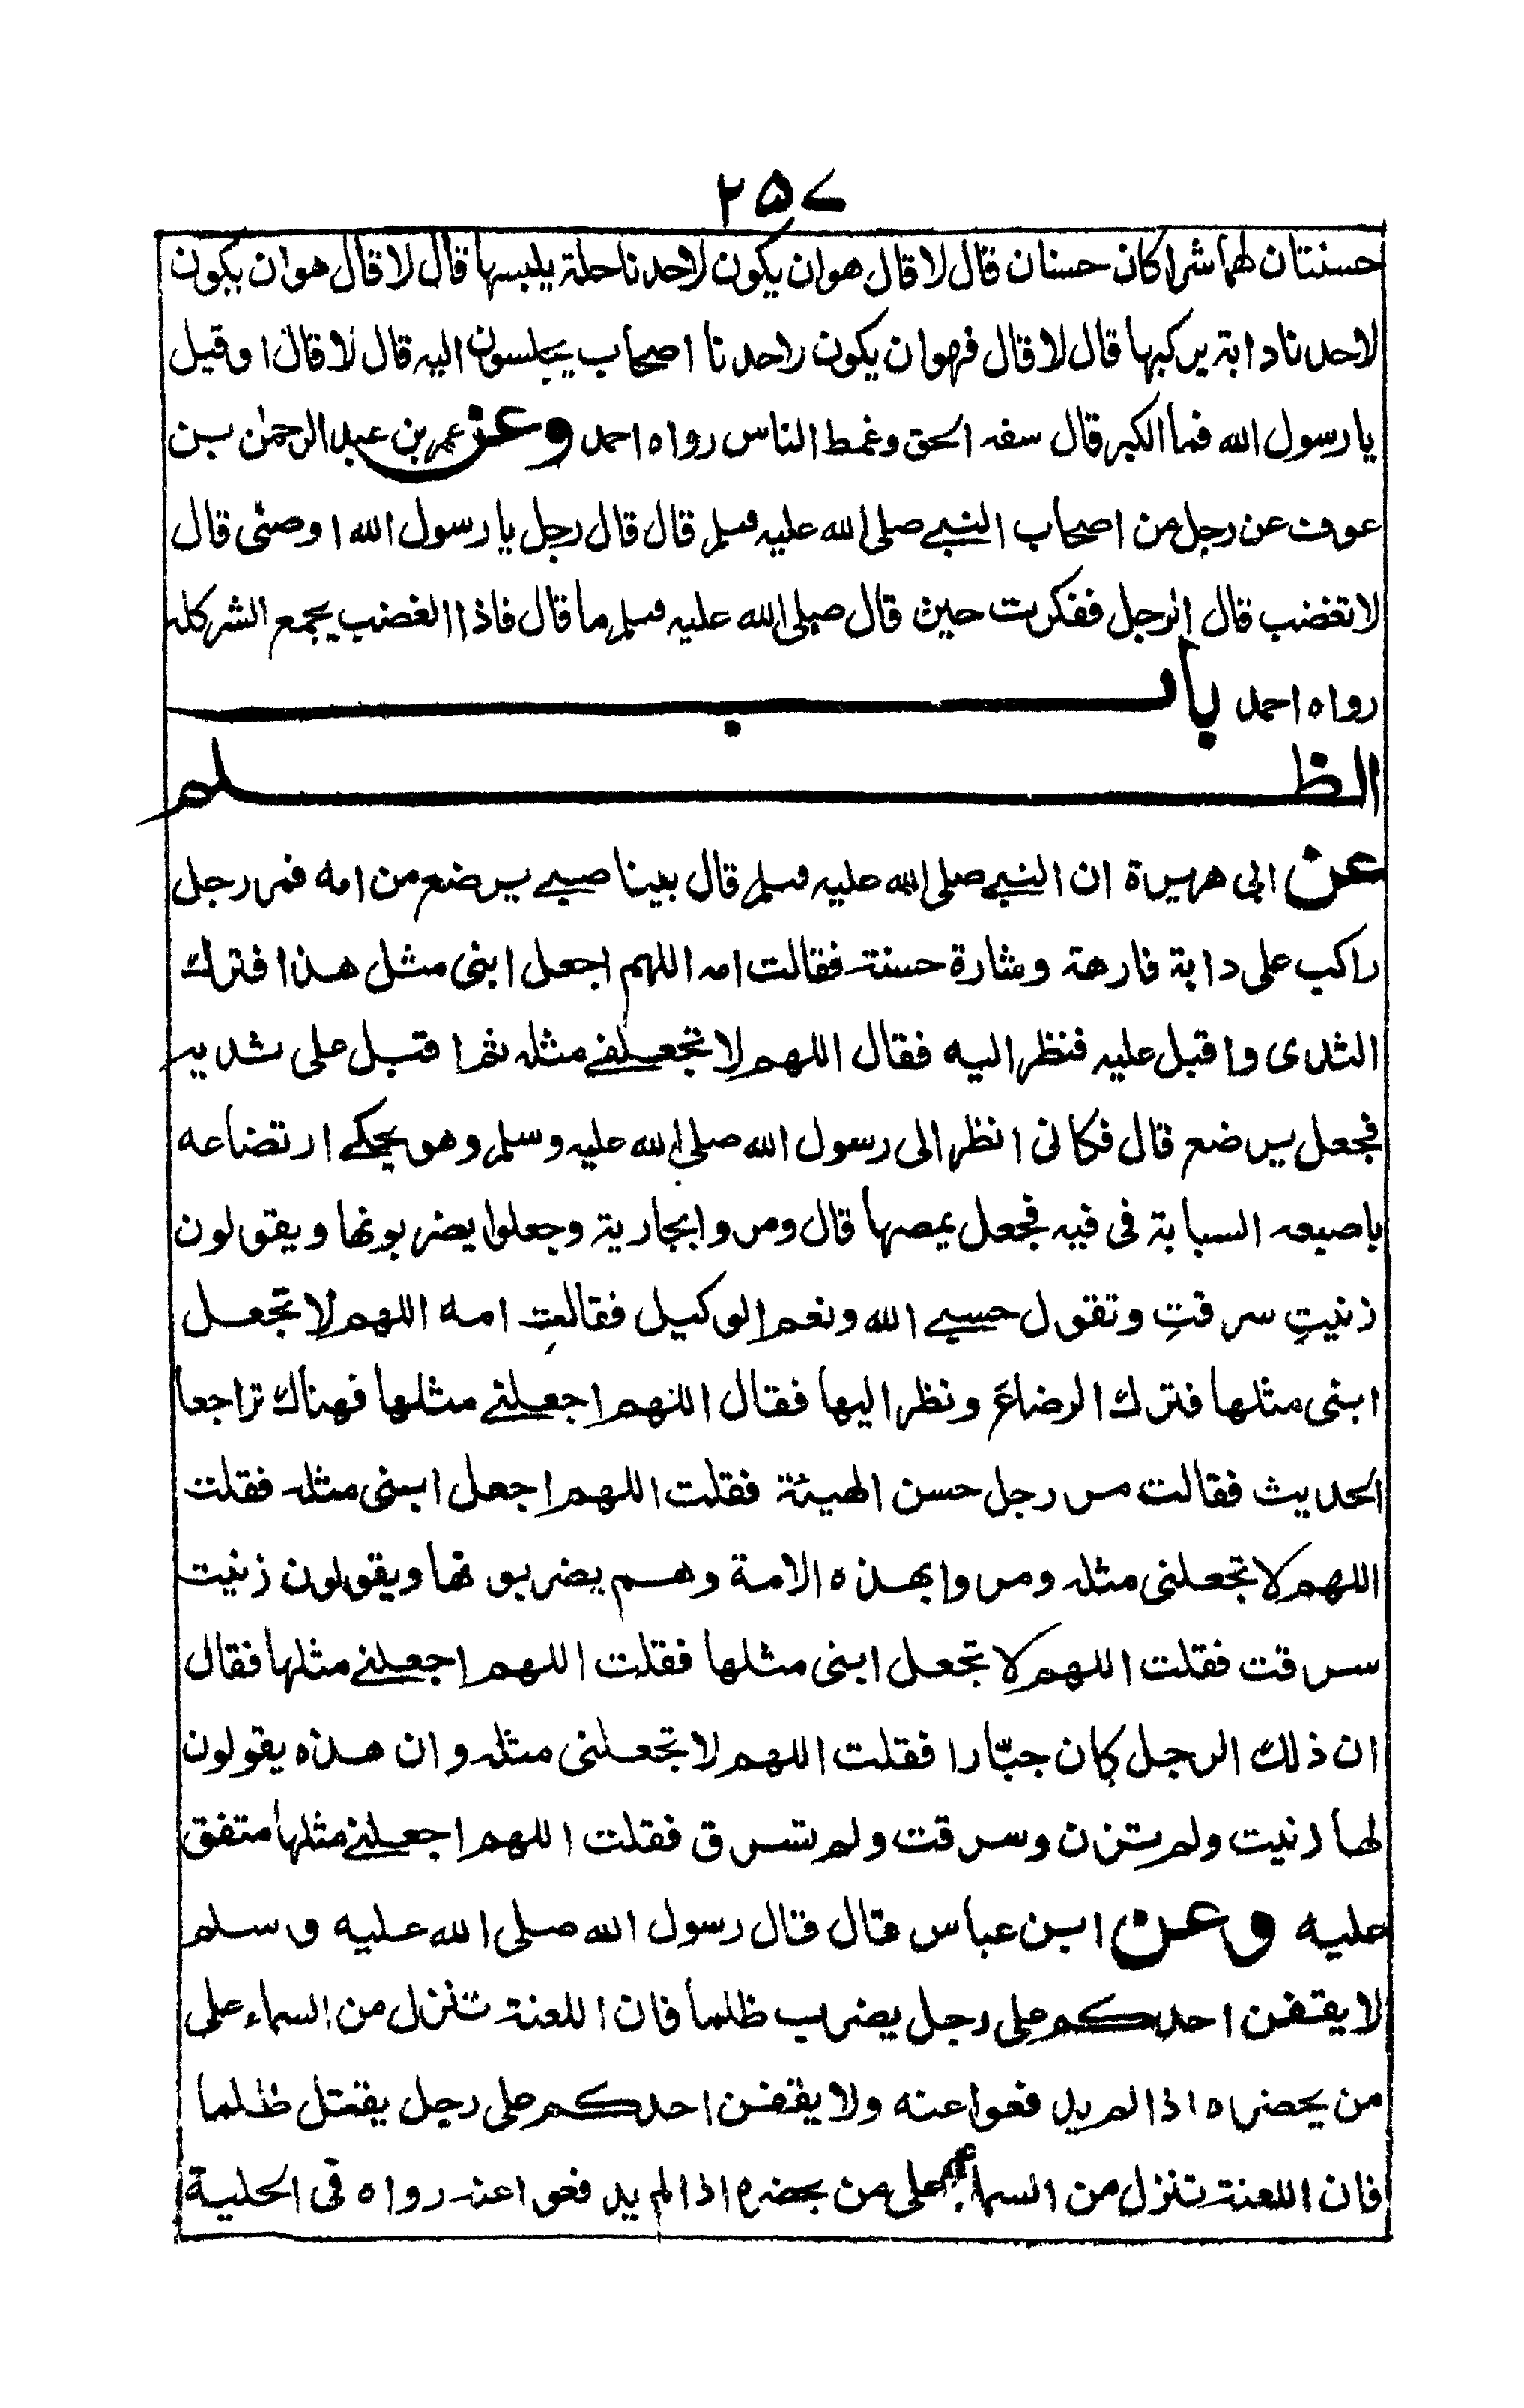 ۲۵۷
حسنتان لهما شراكان حسنان قال لا قال هو ان يكون لاحدنا حلة يلبسها قال لا قال هو ان يكون
لاحدنا دابة يركبها قال لا قال فهو ان يكون لاحدنا اصحاب يجلسون اليه قال لا قال او قيل
يا رسول الله فما الكبر قال سفه الحق وغمط الناس رواه احمد وعن عمر بن عبد الرحمٰن بن
عوف عن رجل من اصحاب النبي صلى الله عليه وسلم قال قال رجل يا رسول الله اوصنى قال
لا تغضب قال الرجل ففكرت حين قال صلى الله عليه وسلم ما قال فاذا الغضب يجمع الشر كله
رواه احمد باب
الظلم
عن ابى هريرة ان النبي صلى الله عليه وسلم قال بينا صبي يرضع من امه فمر رجل
راكب على دابة فارهة وشارة حسنة فقالت امه اللهم اجعل ابنى مثل هذا فترك
الثدى واقبل عليه فنظر اليه فقال اللهم لا تجعلني مثله ثم اقبل على ثديه
فجعل يرضع قال فكانى انظر الى رسول الله صلى الله عليه وسلم وهو يحكي ارتضاعه
باصبعه السبابة فى فيه فجعل يمصها قال ومروا بجارية وجعلوا يضربونها ويقولون
زنيتِ سرقتِ وتقول حسبي الله ونعم الوكيل فقالت امه اللهم لا تجعل
ابنى مثلها فترك الرضاعَ ونظر اليها فقال اللهم اجعلني مثلها فهناك تراجعا
الحديث فقالت مر رجل حسن الهيئة فقلت اللهم اجعل ابنى مثله فقلت
اللهم لا تجعلنى مثله ومروا بهذه الامة وهم يضربونها ويقولون زنيت
سرقت فقلت اللهم لا تجعل ابنى مثلها فقلت اللهم اجعلني مثلها فقال
ان ذلك الرجل كان جبّارا فقلت اللهم لا تجعلنى مثله وان هذه يقولون
لها زنيت ولم تزن وسرقت ولم تسرق فقلت اللهم اجعلني مثلها متفق
عليه وعن ابن عباس قال قال رسول الله صلى الله عليه وسلم
لا يقفن احدكم على رجل يضرب ظلما فان اللعنة تنزل من السماء على
من يحضره اذا لم يد فعوا عنه ولا يقفن احدكم على رجل يقتل ظلما
فان اللعنة تنزل من السماء على من يحضره اذا لم يد فعوا عنه رواه فى الحلية